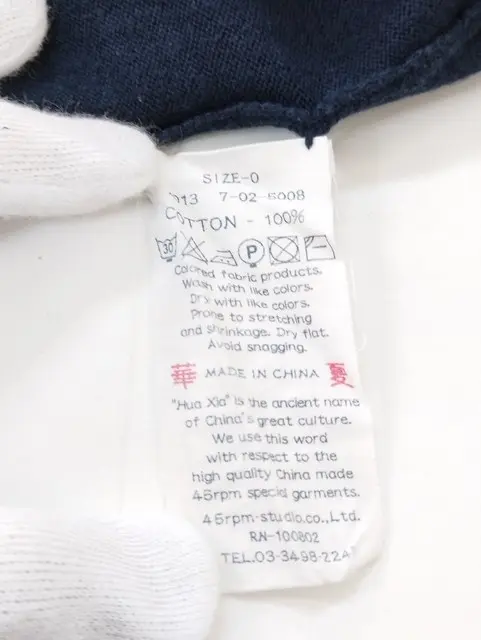 SIZE-0
013 7-02-6008
COTTON - 100%
30 P
Colored fabric products.
Wash with like colors.
Dry with like colors.
Prone to stretching
and shrinkage. Dry flat.
Avoid snagging.
華 MADE IN CHINA 夏
"Hua Xia" is the ancient name
of China's great culture.
We use this word
with respect to the
high quality China made
45rpm special garments.
45rpm-studio.co.,Ltd.
RN-100802
TEL.03-3498-224